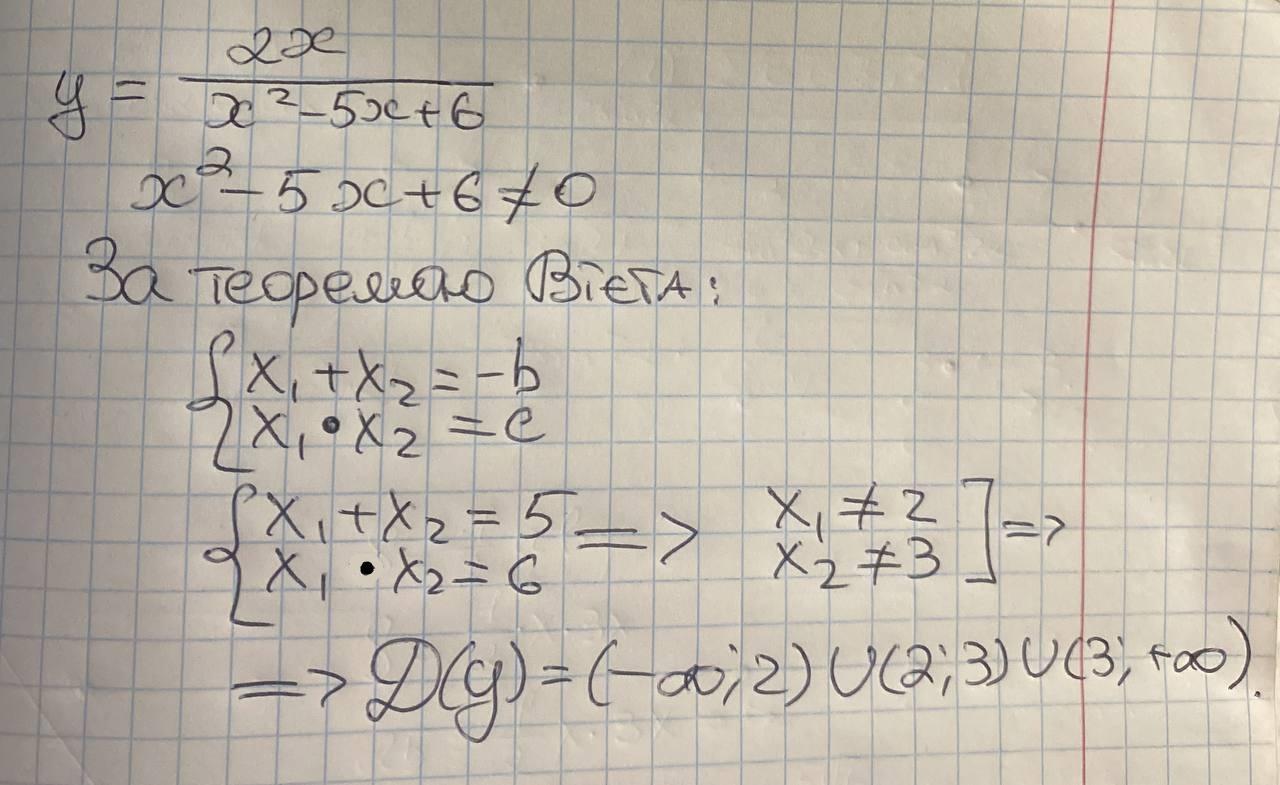 y = 2x / (x² - 5x + 6)
x² - 5x + 6 ≠ 0
За теоремою Вієта:
{ x₁ + x₂ = -b
x₁ • x₂ = c
{ x₁ + x₂ = 5 => x₁ ≠ 2 ] =>
x₁ • x₂ = 6 x₂ ≠ 3
=> D(y) = (-∞; 2) ∪ (2; 3) ∪ (3; +∞).